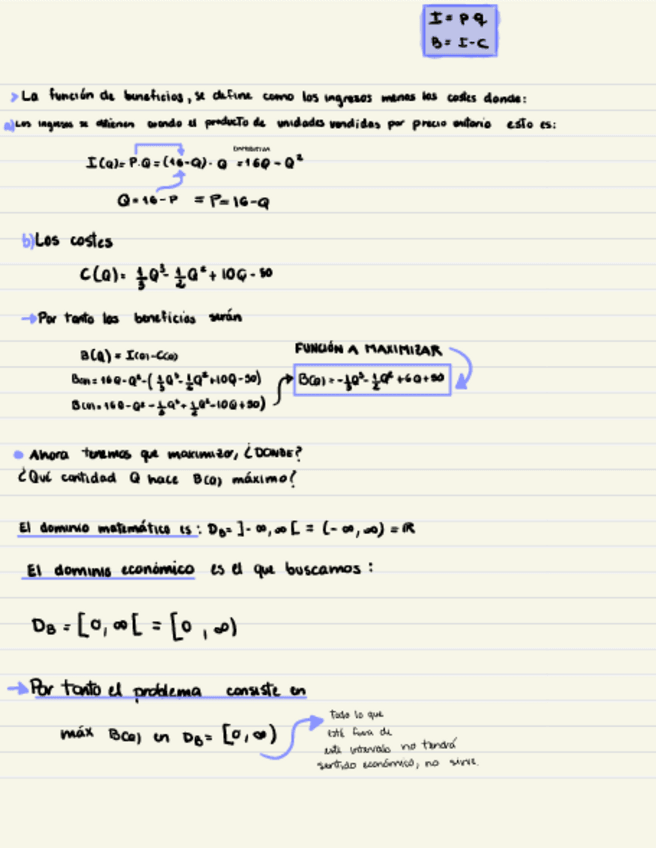 I = P·Q
B = I-C
> La función de beneficios, se define como los ingresos menos los costes donde:
a) Los ingresos se obtienen cuando el producto de unidades vendidas por precio unitario esto es:
I(Q) = P·Q = (16-Q)·Q = 16Q - Q²
Q = 16-P = P = 16-Q
b) Los costes
C(Q) = 1/3 Q³ - 1/2 Q² + 10Q - 50
→ Por tanto los beneficios serán
B(Q) = I(Q) - C(Q)
FUNCIÓN A MAXIMIZAR
B(Q) = 16Q - Q² - (1/3 Q³ - 1/2 Q² + 10Q - 50)
B(Q) = -1/3 Q³ - 1/2 Q² + 6Q + 50
B(Q) = 16Q - Q² - 1/3 Q³ + 1/2 Q² - 10Q + 50)
• Ahora tenemos que maximizar, ¿DONDE?
¿Qué cantidad Q hace B(Q) máximo?
El dominio matemático es: D_B = ]-∞, ∞[ = (-∞, ∞) = ℝ
El dominio económico es el que buscamos:
D_B = [0, ∞[ = [0, ∞)
→ Por tanto el problema consiste en
máx B(Q) en D_B = [0, ∞)
Todo lo que
esté fuera de
este intervalo no tendrá
sentido económico, no sirve.